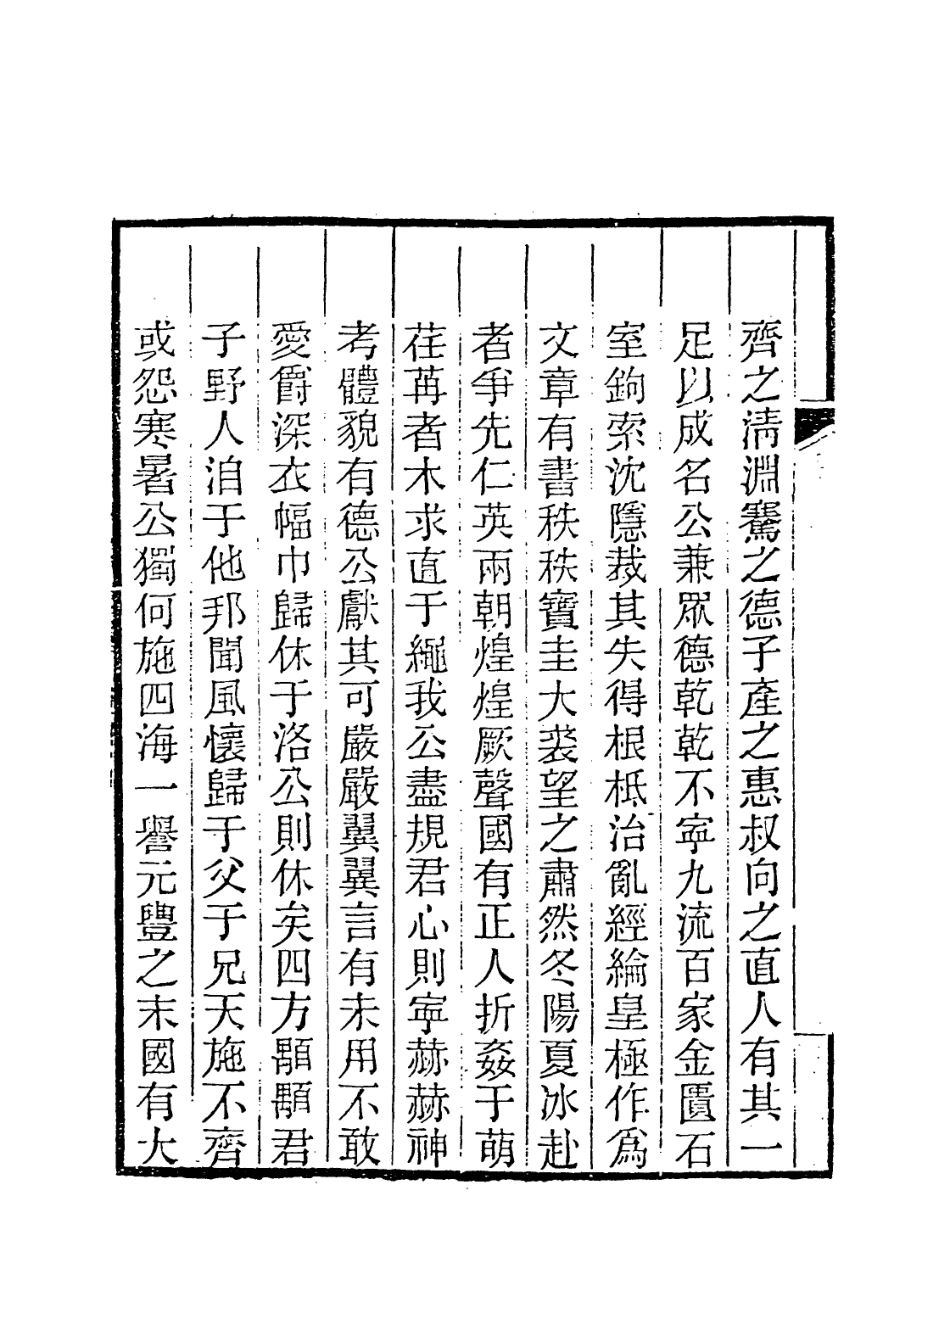 齊之淸淵騫之德子產之惠叔向之直人有其一
足以成名公兼眾德乾乾不寧九流百家金匱石
室鉤索沈隱裁其失得根柢治亂經綸皇極作爲
文章有書秩秩寶圭大裘望之肅然冬陽夏冰赴
者爭先仁英兩朝煌煌厥聲國有正人折姦于萌
荏苒者木求直于繩我公盡規君心則寧赫赫神
考體貌有德公獻其可嚴嚴翼翼言有未用不敢
愛爵深衣幅巾歸休于洛公則休矣四方顒顒君
子野人洎于他邦聞風懷歸于父于兄天施不齊
或怨寒暑公獨何施四海一譽元豐之末國有大